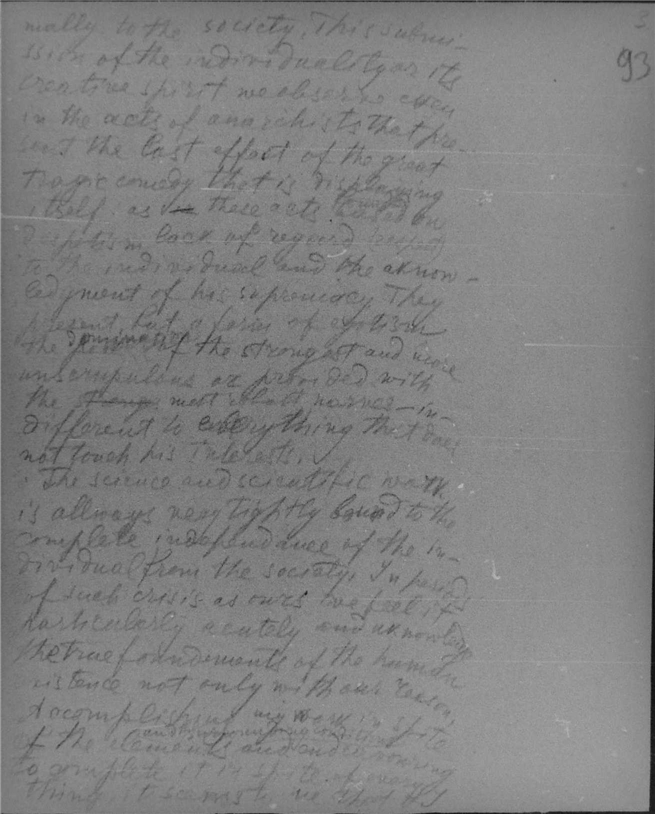 3
93
mally to the society. This submi-
ssion of the individuality or its
creative spirit we observe even
in the acts of anarchists that pre-
sent the last effect of the great
tragic comedy that is displaying
itself as these acts based on
despotism lack of regard (respect)
to the individual and the aknow-
ledgment of his supremacy They
present but a form of egotism
the dominas of the strongest and more
unscrupulous or provided with
the strong most robust nerves – in-
different to everything that does
not touch his interests.
The science and scientific work
is allways very tightly bound to the
complete independance of the in-
dividual from the society. In periods
of such crisis as ours we feel it
particularly acutely and aknowledge
the true foundements of the human
existence not only with our reason.
Accomplishing my work in spite
of the elements and surrounding
and endeavouring
to complete it in spite of every
thing, it seams to me that